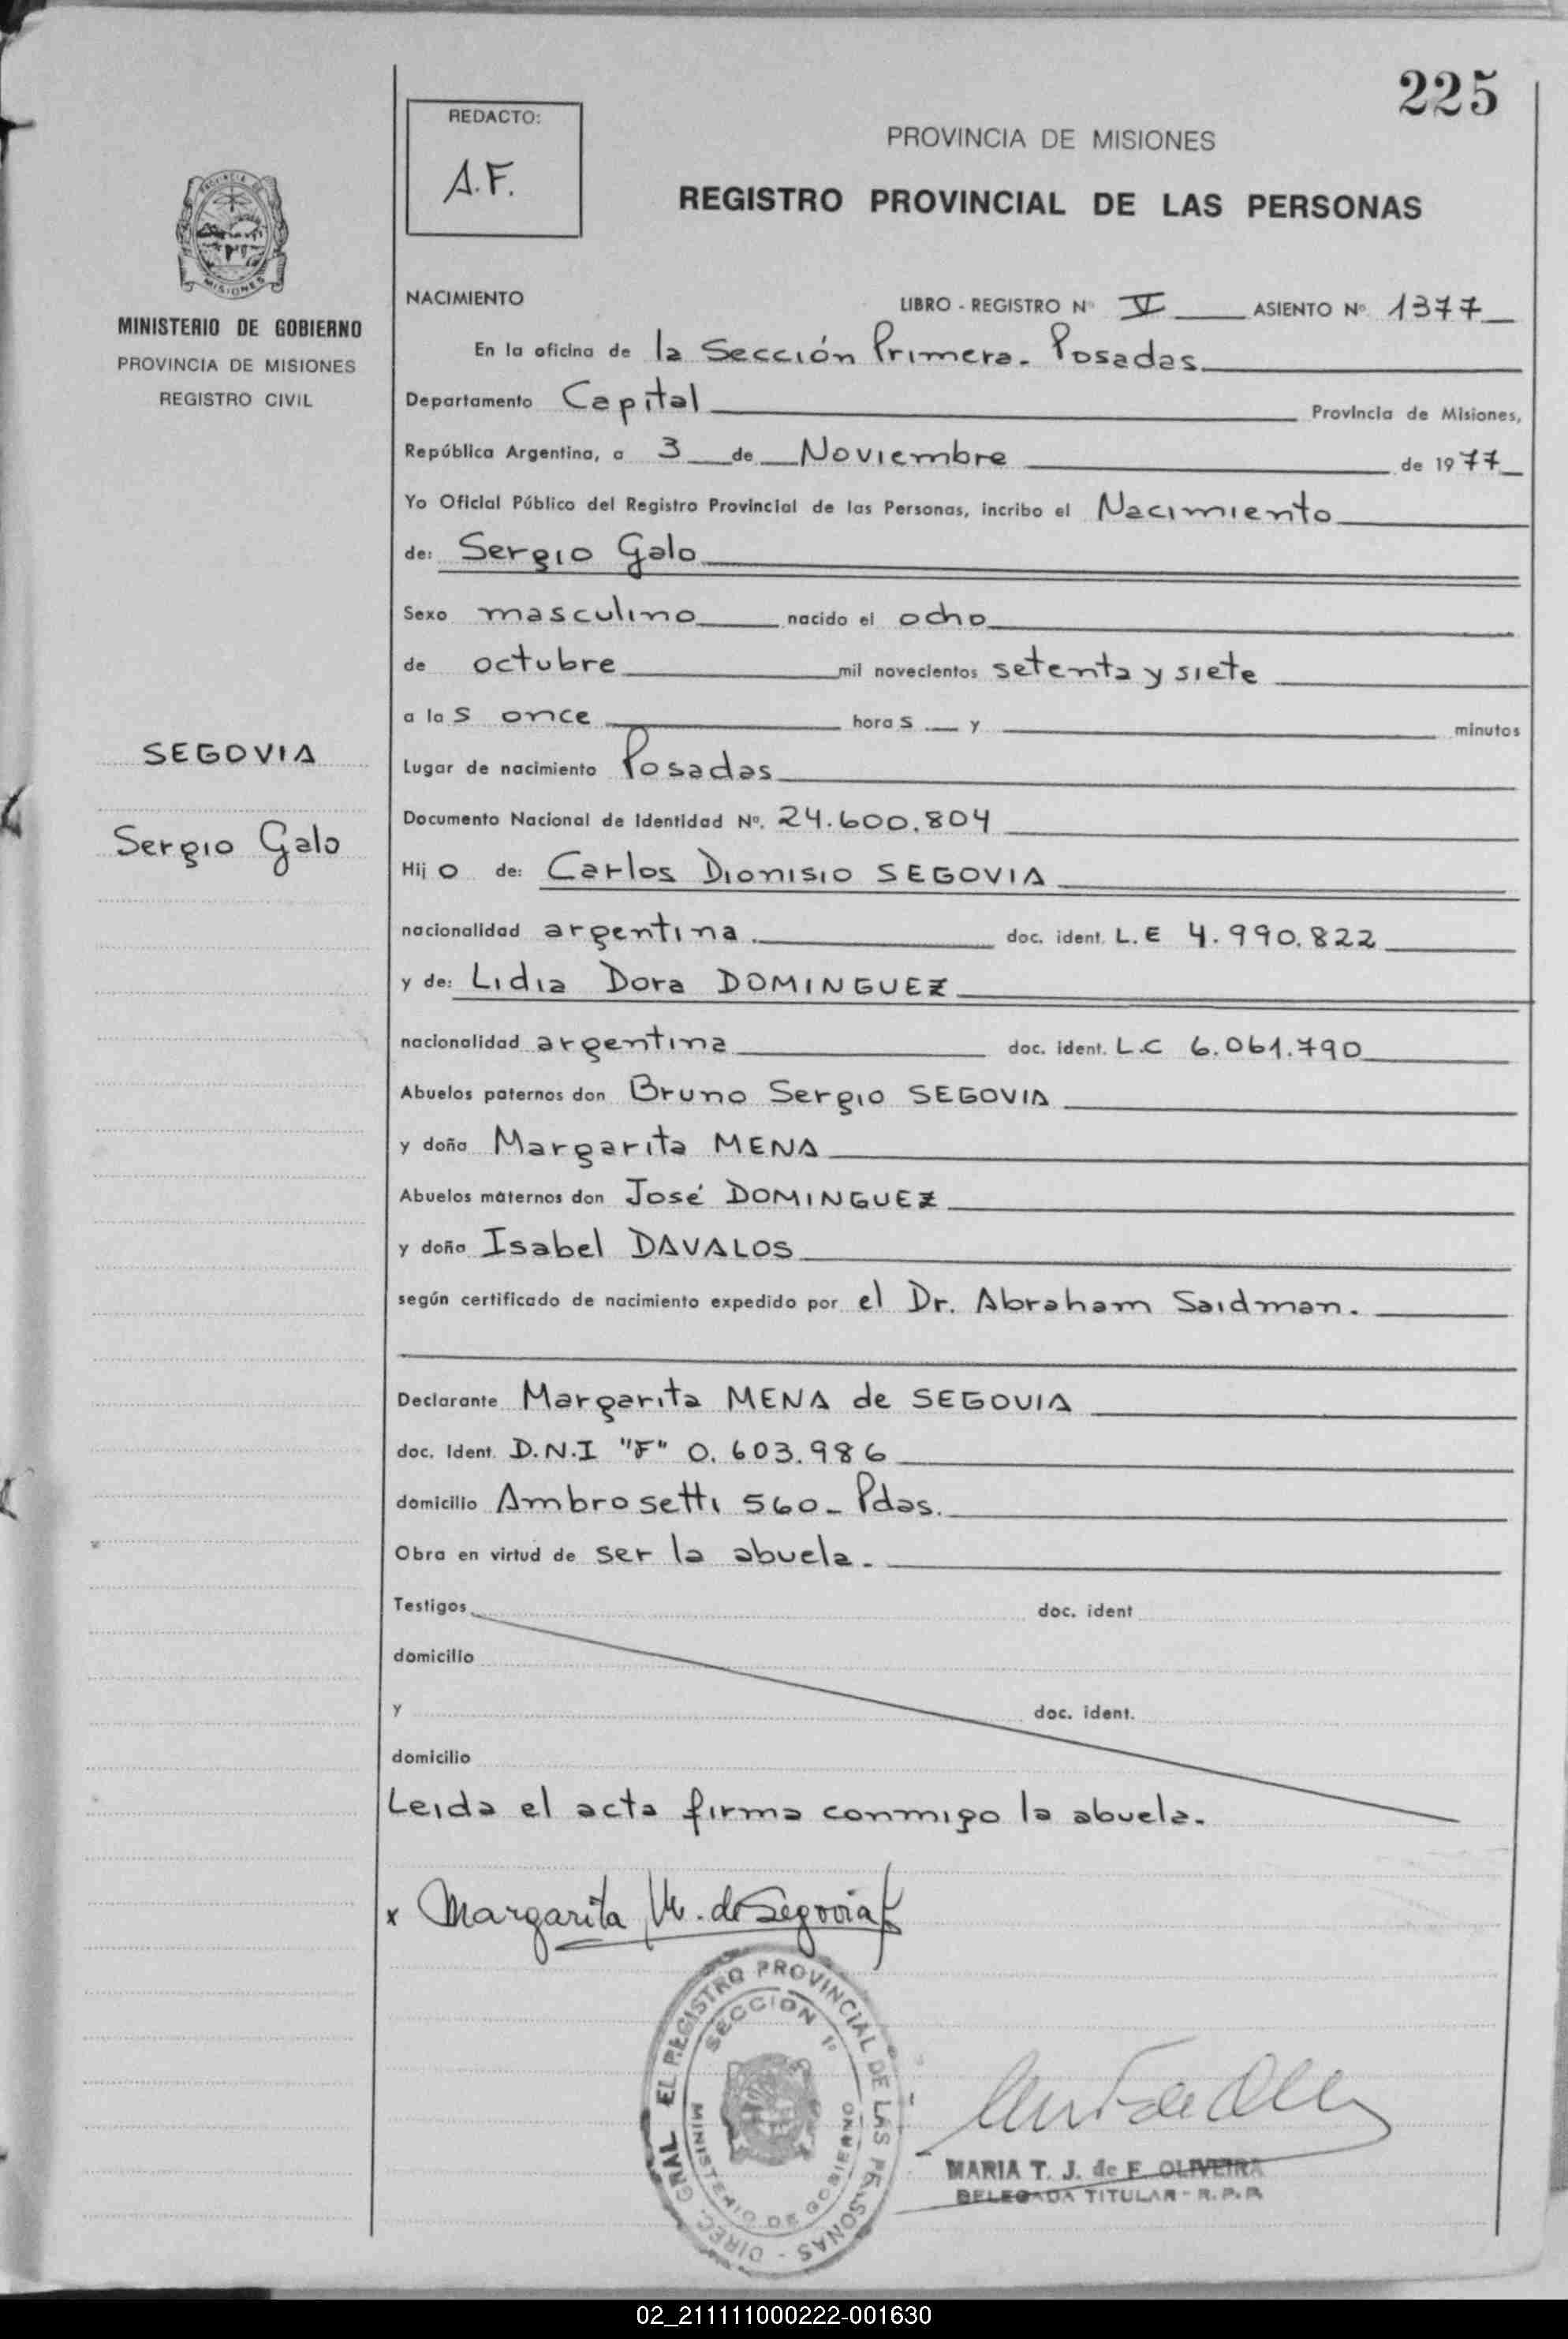 225
REDACTO:
A.F.
PROVINCIA DE MISIONES
REGISTRO PROVINCIAL DE LAS PERSONAS
PROVINCIA DE
MISIONES
MINISTERIO DE GOBIERNO
PROVINCIA DE MISIONES
REGISTRO CIVIL
SEGOVIA
Sergio Galo
NACIMIENTO LIBRO - REGISTRO Nº V ASIENTO Nº 1377
En la oficina de la Sección Primera. Posadas
Departamento Capital Provincia de Misiones,
República Argentina, a 3 de Noviembre de 1977
Yo Oficial Público del Registro Provincial de las Personas, incribo el Nacimiento
de: Sergio Galo
Sexo masculino nacido el ocho
de octubre mil novecientos setenta y siete
a las once horas y minutos
Lugar de nacimiento Posadas
Documento Nacional de Identidad Nº. 24.600.804
Hijo de: Carlos Dionisio SEGOVIA
nacionalidad argentina. doc. ident. L.E 4.990.822
y de: Lidia Dora DOMINGUEZ
nacionalidad argentina doc. ident. L.C 6.061.790
Abuelos paternos don Bruno Sergio SEGOVIA
y doña Margarita MENA
Abuelos maternos don José DOMINGUEZ
y doña Isabel DAVALOS
según certificado de nacimiento expedido por el Dr. Abraham Saidman.
Declarante Margarita MENA de SEGOVIA
doc. Ident. D.N.I "F" 0.603.986
domicilio Ambrosetti 560- Pdas.
Obra en virtud de ser la abuela.
Testigos doc. ident
domicilio
y doc. ident.
domicilio
Leida el acta firma conmigo la abuela.
x Margarita M. de Segovia
DIREC. GRAL EL REGISTRO PROVINCIAL DE LAS PERSONAS -
SECCION 1º
MINISTERIO DE GOBIERNO
MARIA T. J. de F. OLIVEIRA
DELEGADA TITULAR - R.P.P.
02_211111000222-001630